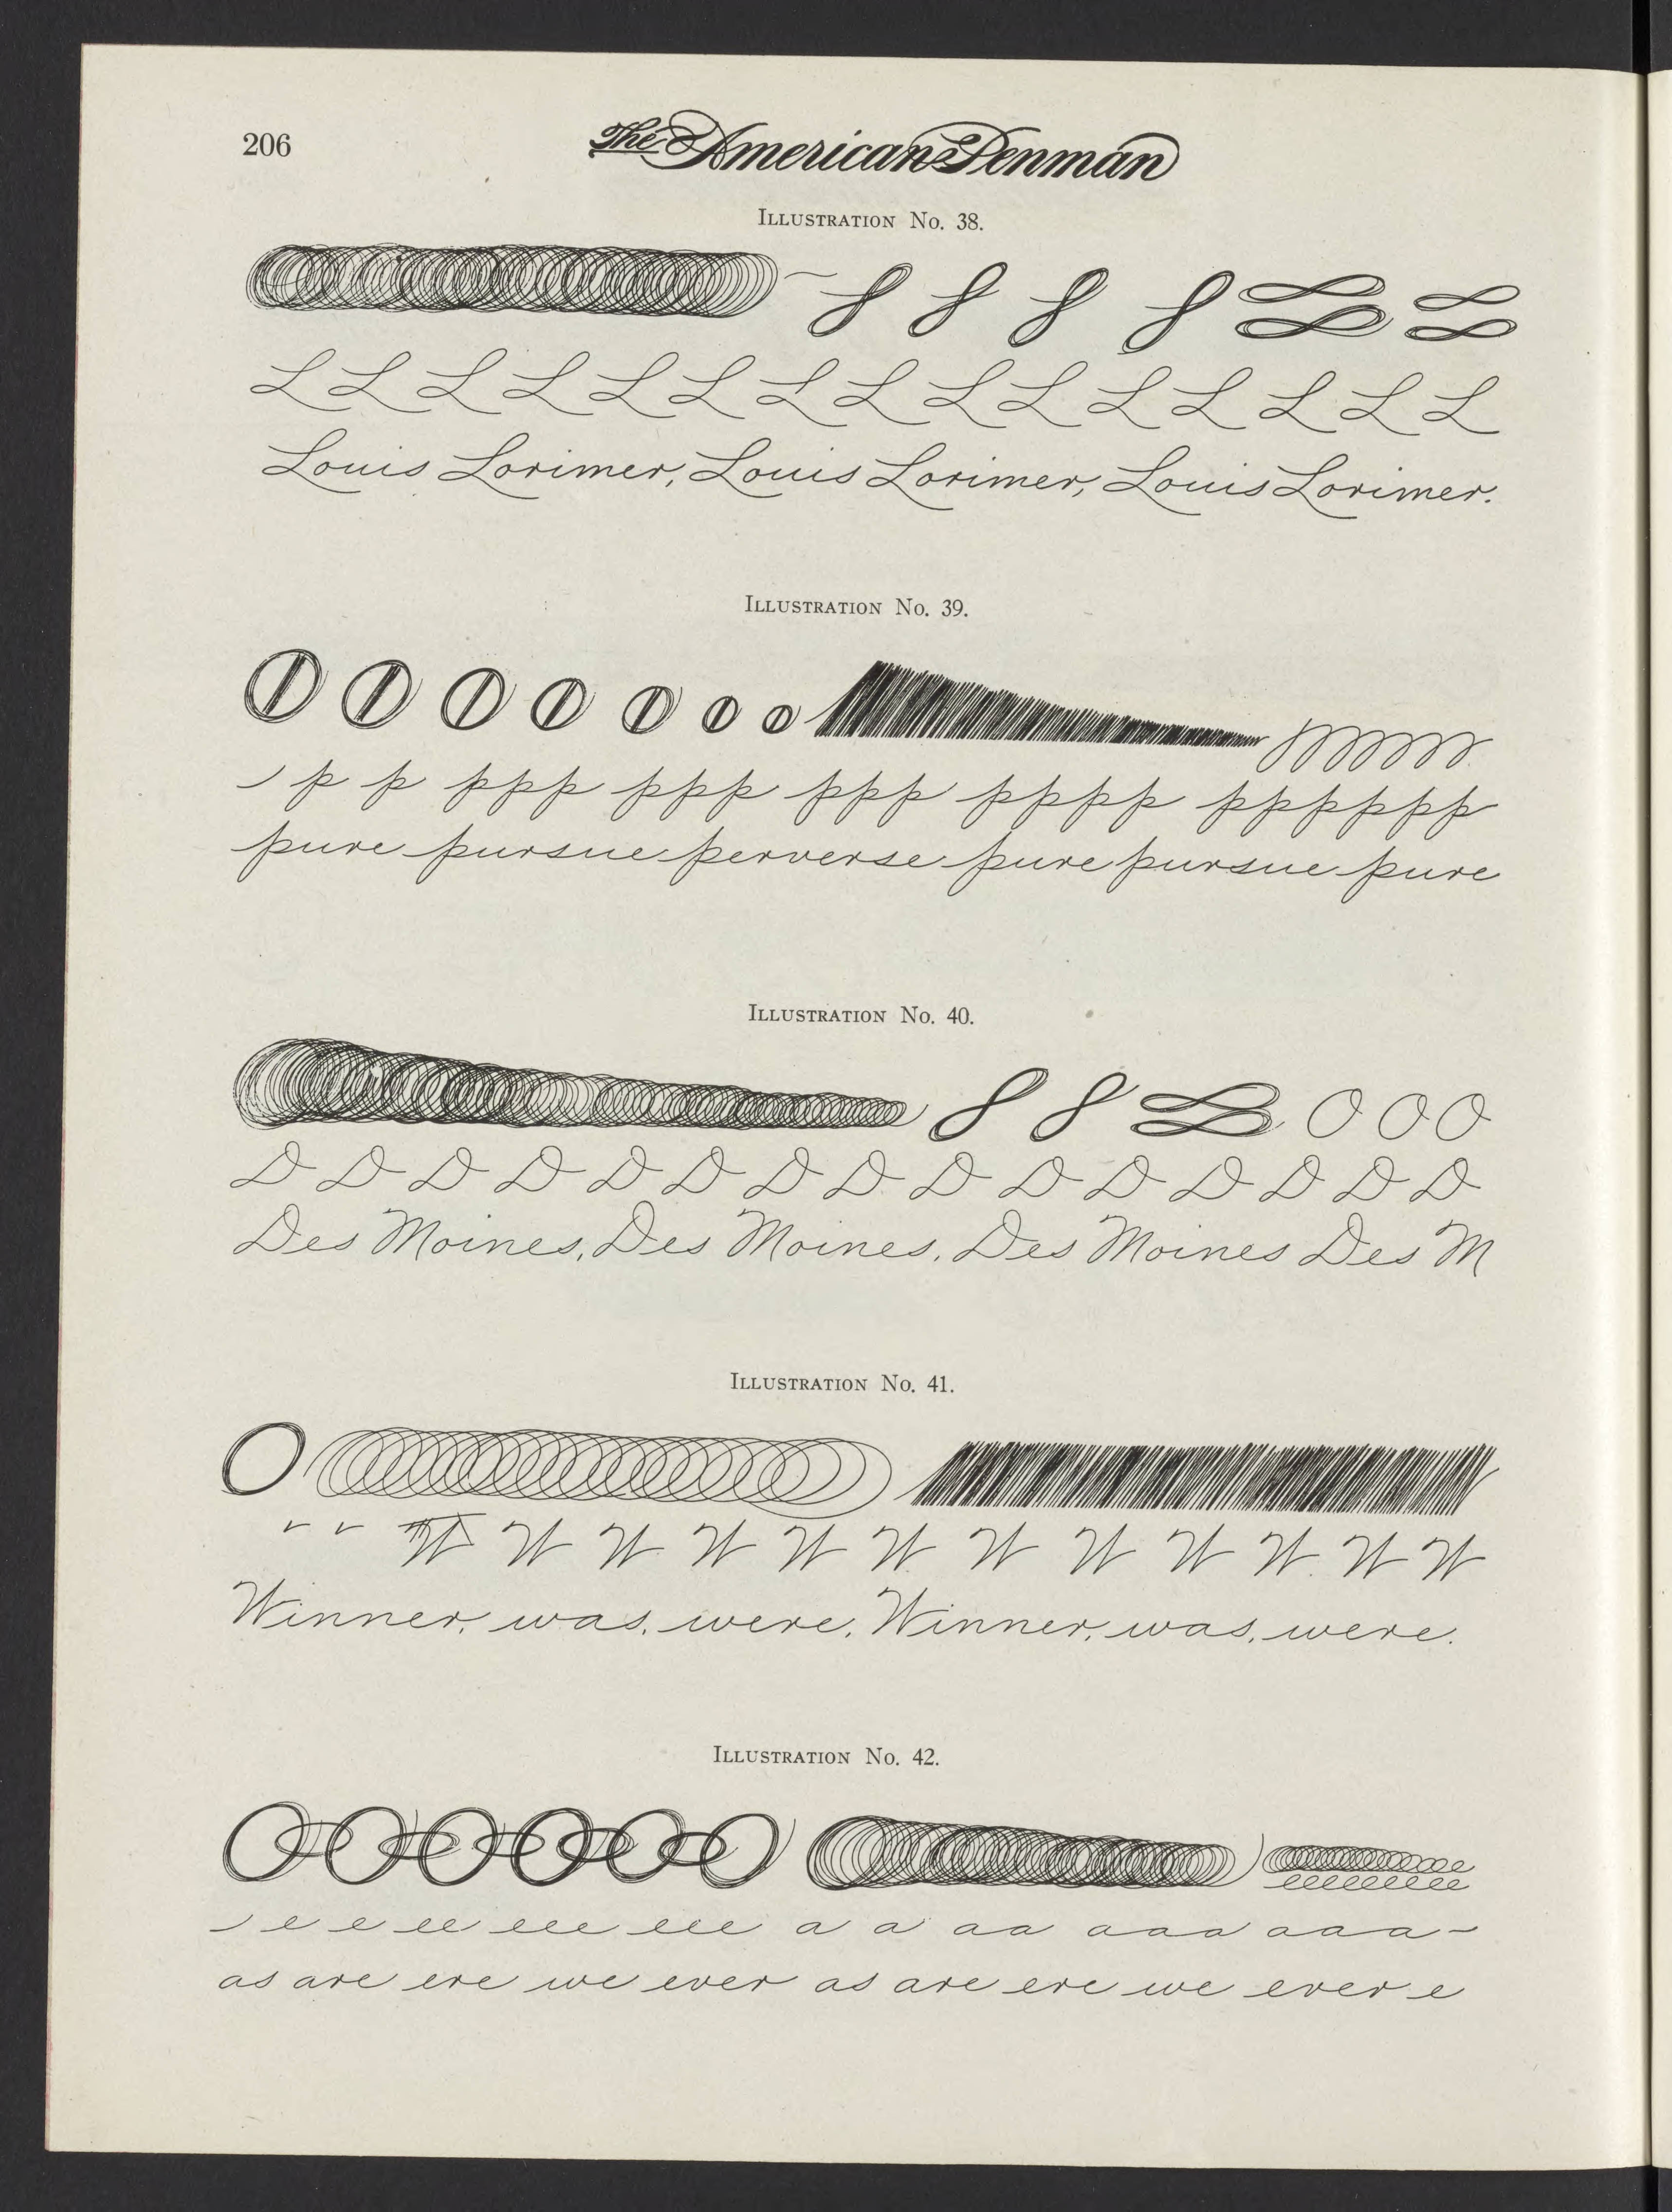 206
The American Penman
Illustration No. 38.
L L L L L L L L L L L L L L L
Louis Lorimer, Louis Lorimer, Louis Lorimer.
Illustration No. 39.
p p ppp ppp ppp pppp pppppp
pure pursue perverse pure pursue pure
Illustration No. 40.
O O O
D D D D D D D D D D D D D D D
Des Moines, Des Moines, Des Moines Des M
Illustration No. 41.
O
W W W W W W W W W W W W
Winner, was, were, Winner, was, were.
Illustration No. 42.
e e ee eee eee a a aa aaa aaa
as are ere we ever as are ere we ever e